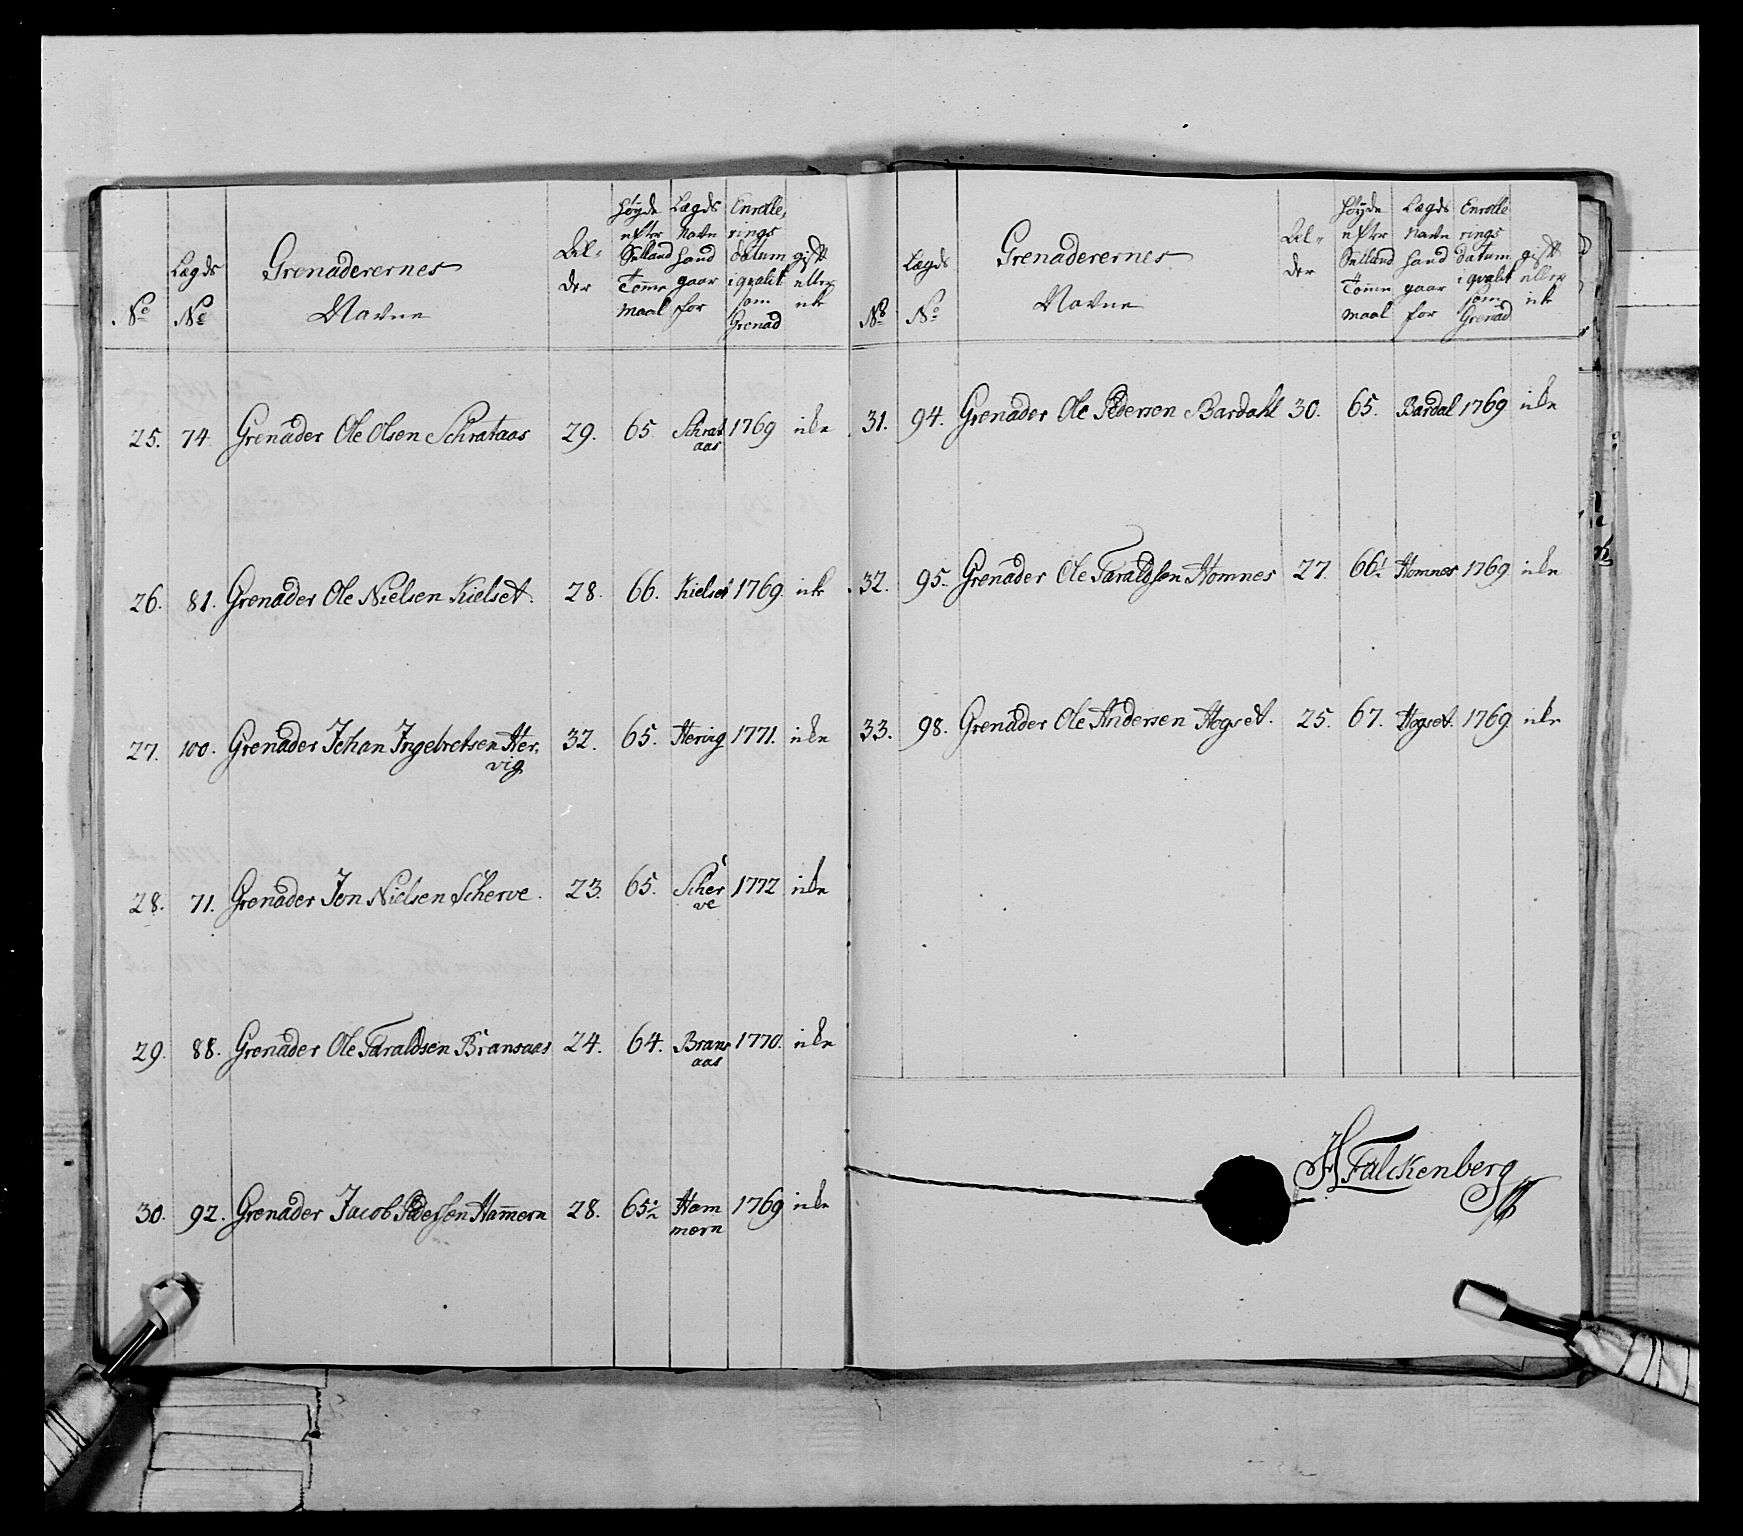 No
Lægds No
Grenaderernes Navne
Al- der
Høyde efter Selland Tomme maal
Lægds Navn hand gaar for
Enrolle, rings datum i qvalit som Grenad
gift eller ick
25. 74. Grenader Ole Olsen Schrataas 29. 65 Schrat 1769 icke
aas
26. 81. Grenader Ole Nielsen Kielset. 28. 66. Kielset 1769 icke
27. 100. Grenader Johan Ingebretsen Her- 32. 65. Hervig 1771. icke
vig
28. 71. Grenader Jon Nielsen Scherve. 23. 65. Scher 1772 icke
ve
29. 88. Grenader Ole Taraldsen Bransaas 24. 64. Brans 1770. icke
aas
30. 92. Grenader Jacob Pedersen Ham̄ern 28. 65½ Ham 1769 icke
mern
No
Lægds No
Grenaderernes Navne
Al- der
Høyde efter Selland Tomme maal
Lægds Navn hand gaar for
Enrolle rings datum i qvalit som Grenad
gift eller ick
31. 94. Grenader Ole Pedersen Bardahl 30. 65. Bardal 1769 icke
32. 95. Grenader Ole Taraldsen Homnes 27. 66½ Homnes 1769 icke
33. 98. Grenader Ole Andersen Hogset. 25. 67. Hogset. 1769 icke
H Falckenberg